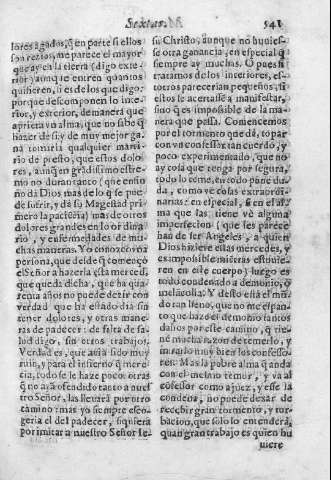 Sextas.
541
lores agudos, q̃ en parte si ellos
son rezios, me parece el mayor
que ay en la tierra (digo exte-
rior) aunque entren quantos
quisieren, si es de los que digo:
porque descomponen lo inte-
rior, y exterior, de manera que
aprieta vn alma, que no sabe q̃
hazer de si, y de muy mejor ga-
na tomaria qualquier marti-
rio de presto, que estos dolo-
res, aunq̃ en grãdissimo estre-
mo no duran tanto (que en fin
no dà Dios mas de lo q̃ se pue-
de sufrir, y dà su Magestad pri-
mero la paciẽcia) mas de otros
dolores grandes en lo ordina
rio, y enfermedades de mu-
chas maneras. Yo conozco vna
persona, que desde q̃ començò
el Señor a hazerla esta merced,
que queda dicha, que ha qua-
renta años no puede dezir con
verdad que ha estado dia sin
tener dolores, y otras mane-
ras de padecer: de falta de sa-
lud digo, sin otros trabajos.
Verdad es, que auia sido muy
ruin, y para el infierno q̃ mere-
cia, todo se le haze poco: otras
q̃ no ayã ofendido tanto a nuest
ro Señor, las lleuarà por otro
camino: mas yo siempre esco-
geria el del padecer, siquiera
por imitar a nuestro Señor Ie-
su Christo, aunque no huuies-
se otra ganancia, en especial q̃
siempre ay muchas. O pues si
tratamos de los interiores, es-
totros parecerian pequeños, si
estos se acertasse a manifestar,
sino q̃ es impossible de la ma-
nera que passa. Comencemos
por el tormento que dà, topar
con vn confessor tan cuerdo, y
poco experimentado, que no
ay cosa que tenga por segura,
todo lo teme, en todo pone du-
da, como vè cosas extraordi-
narias: en especial, si en el al-
ma que las tiene vè alguna
imperfecion (que les parece
han de ser Angeles, a quien
Dios hiziere estas mercedes, y
es impossible mientras estuuie-
ren en este cuerpo) luego es
todo condenado a demonio, ò
melancolia. Y desto està el mũ-
do tan lleno, que no me espan-
to que haze el demonio tantos
daños por este camino, q̃ tie-
nẽ mucha razon de temerlo, y
mirarlo muy bien los confesso-
res: Mas la pobre alma q̃ anda
con el mesmo temor, y va al
cõfessor como a juez, y esse la
condena, no puede dexar de
recebir gran tormento, y tur-
bacion, que solo lo entenderà,
quan gran trabajo es quien hu
uiere